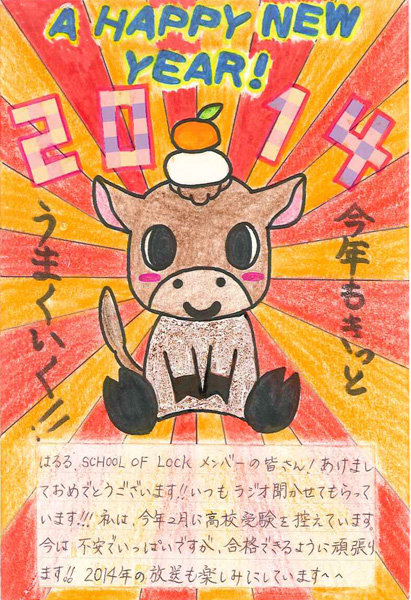 A HAPPY NEW
YEAR!
2014
今年もきっと
うまくいく!!
はるる、SCHOOL OF LOCK メンバーの皆さん!あけまし
ておめでとうございます!!いつもラジオ聞かせてもらって
います!!!私は、今年2月に高校受験を控えています。
今は不安でいっぱいですが、合格できるように頑張り
ます!!2014年の放送も楽しみにしています^^